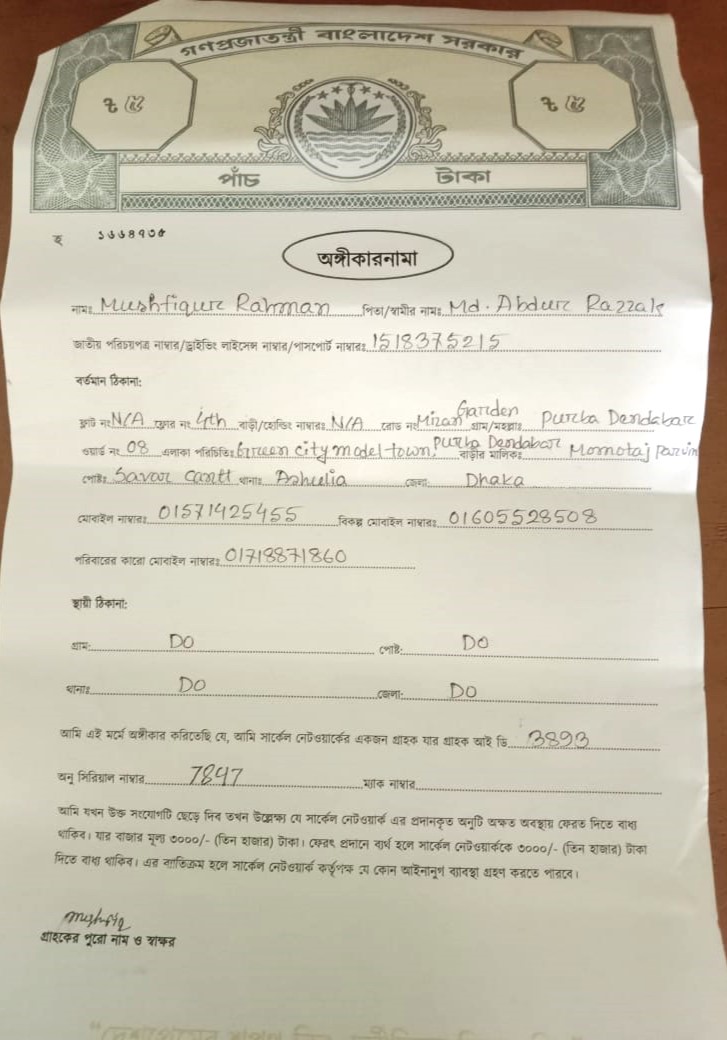 গণপ্রজাতন্ত্রী বাংলাদেশ সরকার
৳ ৫ ৳ ৫
পাঁচ টাকা
হ ১৬৬৪৭৩৫
অঙ্গীকারনামা
নামঃ Mushfiqur Rahman পিতা/স্বামীর নামঃ Md. Abdur Razzak
জাতীয় পরিচয়পত্র নাম্বার/ড্রাইভিং লাইসেন্স নাম্বার/পাসপোর্ট নাম্বারঃ 1518375215
বর্তমান ঠিকানা:
ফ্লাট নং N/A ফ্লোর নং 4th বাড়ী/হোল্ডিং নাম্বারঃ N/A রোড নং Mizan Garden গ্রাম/মহল্লাঃ Purba Dendabar
ওয়ার্ড নং 08 এলাকা পরিচিতিঃ Green city model town, Purba Dendabar বাড়ীর মালিকঃ Momotaj Parvin
পোষ্টঃ Savar Cantt থানাঃ Ashulia জেলা Dhaka
মোবাইল নাম্বারঃ 01571425455 বিকল্প মোবাইল নাম্বারঃ 01605528508
পরিবারের কারো মোবাইল নাম্বারঃ 01718871860
স্থায়ী ঠিকানা:
গ্রাম: DO পোষ্ট: DO
থানাঃ DO জেলা: DO
আমি এই মর্মে অঙ্গীকার করিতেছি যে, আমি সার্কেল নেটওয়ার্কের একজন গ্রাহক যার গ্রাহক আই ডি 3893
অনু সিরিয়াল নাম্বার 7847 ম্যাক নাম্বার
আমি যখন উক্ত সংযোগটি ছেড়ে দিব তখন উল্লেক্ষ্য যে সার্কেল নেটওয়ার্ক এর প্রদানকৃত অনুটি অক্ষত অবস্থায় ফেরত দিতে বাধ্য
থাকিব। যার বাজার মূল্য ৩০০০/- (তিন হাজার) টাকা। ফেরৎ প্রদানে ব্যর্থ হলে সার্কেল নেটওয়ার্ককে ৩০০০/- (তিন হাজার) টাকা
দিতে বাধ্য থাকিব। এর ব্যতিক্রম হলে সার্কেল নেটওয়ার্ক কর্তৃপক্ষ যে কোন আইনানুগ ব্যাবস্থা গ্রহণ করতে পারবে।
Mushfiq
গ্রাহকের পুরো নাম ও স্বাক্ষর